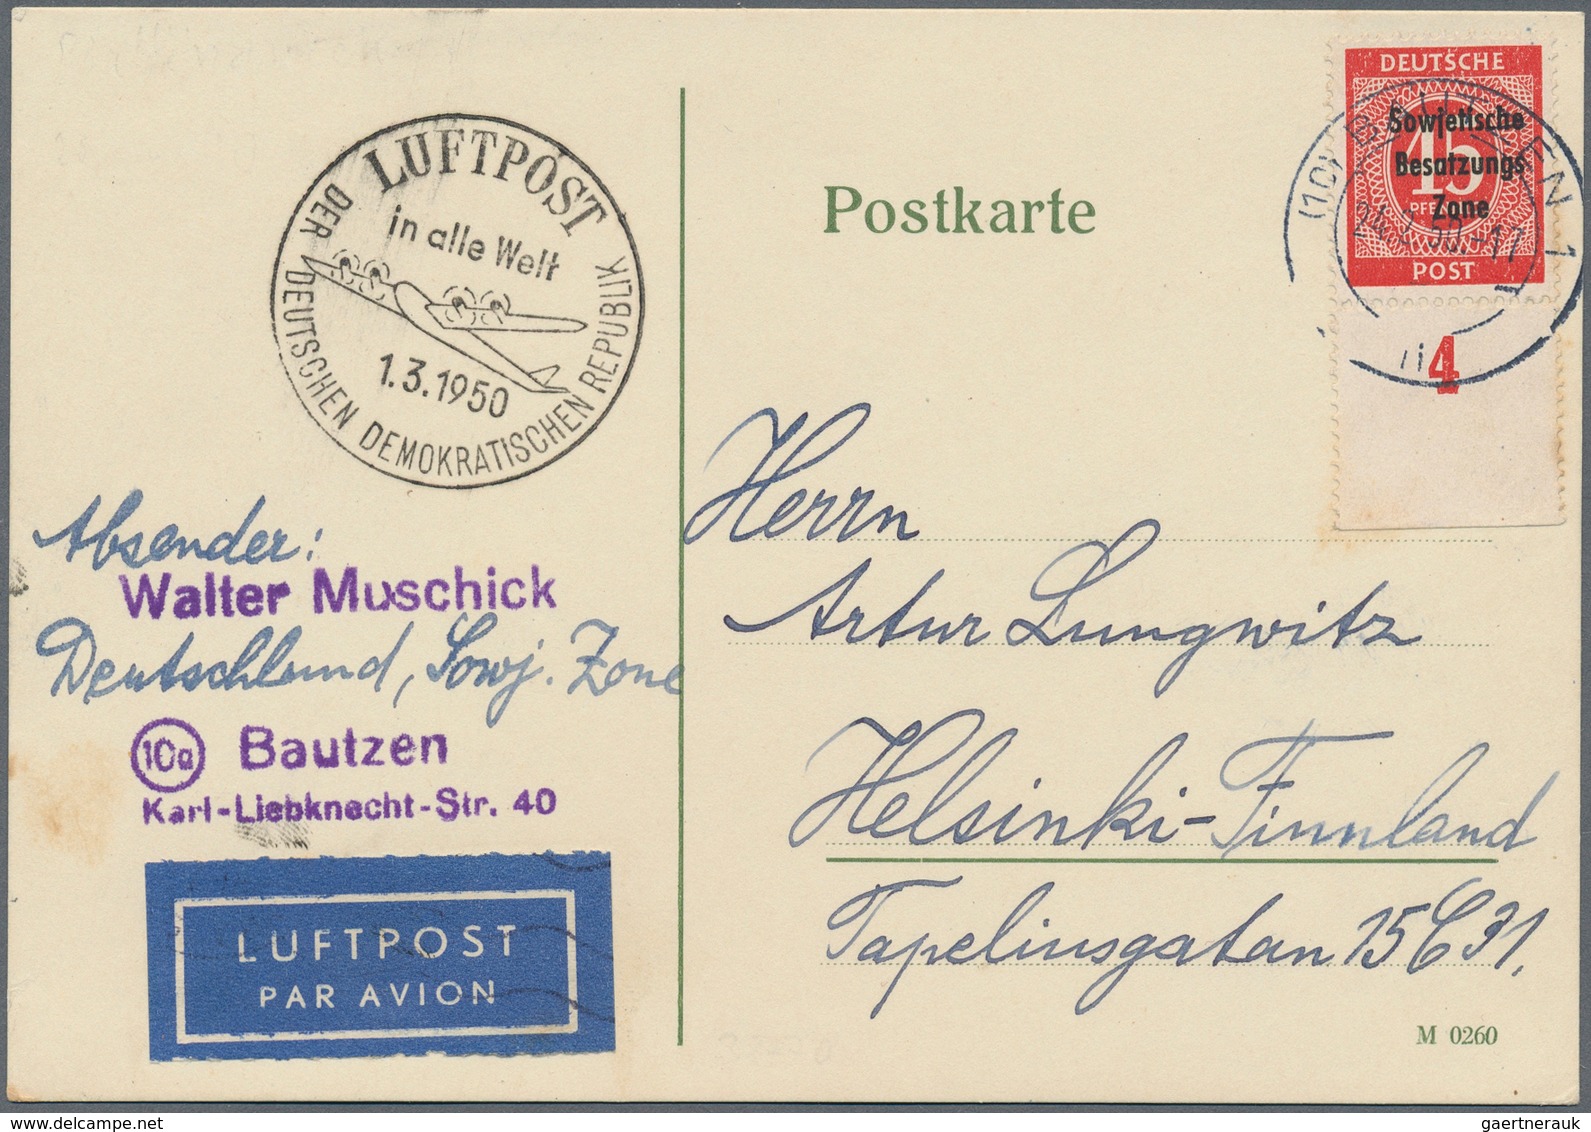 LUFTPOST
in alle Welt
1.3.1950
DER DEUTSCHEN DEMOKRATISCHEN REPUBLIK
Postkarte
DEUTSCHE
Sowjetische
Besatzungs
Zone
45
POST
(10) BAUTZEN 1
24.2.50.-17
4
Absender:
Walter Muschick
Deutschland, Sowj. Zone
10a Bautzen
Karl-Liebknecht-Str. 40
LUFTPOST
PAR AVION
Herrn
Artur Lungwitz
Helsinki-Finnland
Tapeliusgatan 15 C 31.
M 0260
www.delcampe.net
gaertnerauk